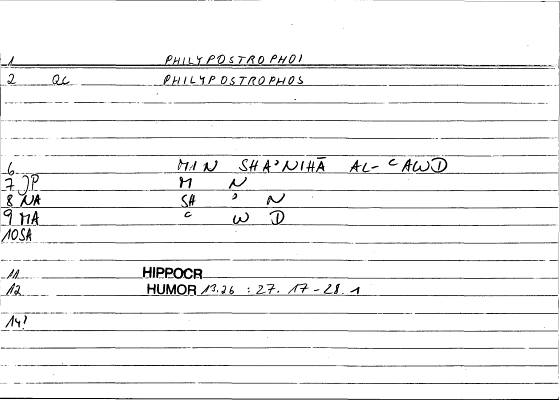 1 PHILYPOSTROPHOI
2 QC PHILYPOSTROPHOS
6 MIN SHA'NIHĀ AL-ʿAWD
7 JP M N
8 NA SH ' N
9 MA ʿ W D
10 SA
11 HIPPOCR
12 HUMOR 13.26 : 27.17-28.1
14!